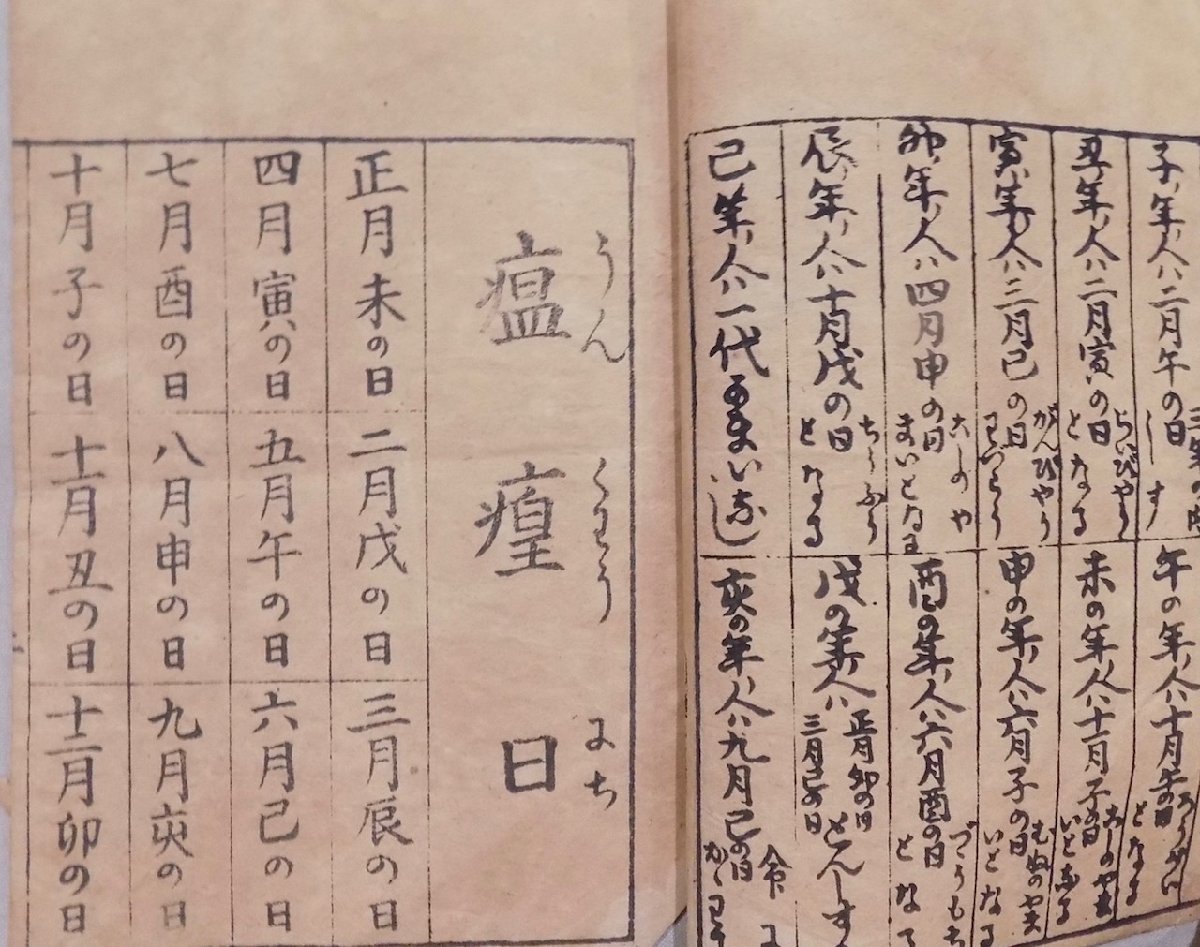 子ノ年ノ人ハ二月午の日
しす
丑ノ年ノ人ハ二月寅の日
らいびやう
となる
寅ノ年ノ人ハ三月巳の日
がんびやう
わづらう
卯ノ年ノ人ハ四月申の日
こしのや
まいとなる
辰ノ年ノ人ハ十月戌の日
ちうふう
となる
巳ノ年ノ人ハ一代かまいなし
午の年ノ人ハ十月午の日
となる
未の年ノ人ハ十一月子の日
こしのやま
いとなる
申の年ノ人ハ六月子の日
むねのやま
いとなる
酉の年ノ人ハ六月酉の日
戌の年ノ人ハ
正月卯の日
三月巳の日
とんしす
亥の年ノ人ハ九月巳の日
命に
うん くわう にち
瘟 瘟 日
正月未の日
二月戌の日
三月辰の日
四月寅の日
五月午の日
六月巳の日
七月酉の日
八月申の日
九月亥の日
十月子の日
十一月丑の日
十二月卯の日